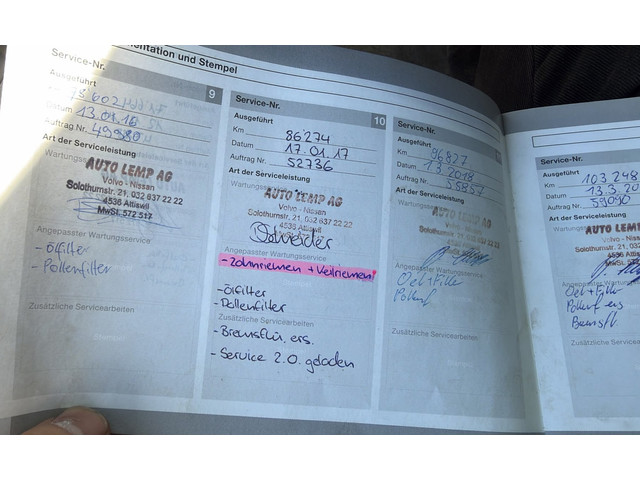 entation und Stempel
Service-Nr.
9
Ausgeführt
Datum 13.01.16
Auftrag Nr. 49980
Art der Serviceleistung
Wartungs
AUTO LEMP AG
Volvo - Nissan
Solothurnstr. 21, 032 637 22 22
4536 Attiswil
MwSt. 572 517
Angepasster Wartungsservice
- Ölfilter
- Pollenfilter
Zusätzliche Servicearbeiten
Service-Nr.
10
Ausgeführt
Km 86274
Datum 17.01.17
Auftrag Nr. 52736
Art der Serviceleistung
Wartungsservice
AUTO LEMP AG
Volvo - Nissan
Solothurnstr. 21, 032 637 22 22
4536 Attiswil
Angepasster Wartungsservice
- Zahnriemen + Keilriemen!
- Ölfilter
- Pollenfilter
Zusätzliche Servicearbeiten
- Bremsflü. ers.
- Service 2.0. geladen
Service-Nr.
Ausgeführt
Km 96827
Datum 1.3.2018
Auftrag Nr. 55857
Art der Serviceleistung
Wartungs
AUTO LEMP AG
Volvo - Nissan
Solothurnstr. 21, 032 637 22 22
4536 Attiswil
Angepasster Wartungsservice
Oel + Filter
Pollenf
Zusätzliche Servicearbeiten
Ausgeführt
Km 103 248
Datum 13.3.
Auftrag Nr. 59090
Art der Serviceleistung
Wartungsservice
AUTO LEMP
Volvo - Nissan
Solothurnstr. 21, 032 637
4536 Attiswil
MwSt.
Angepasster Wartungsservice
Oel + Filter
Pollenf ers
Bremsfl.
Zusätzliche Service